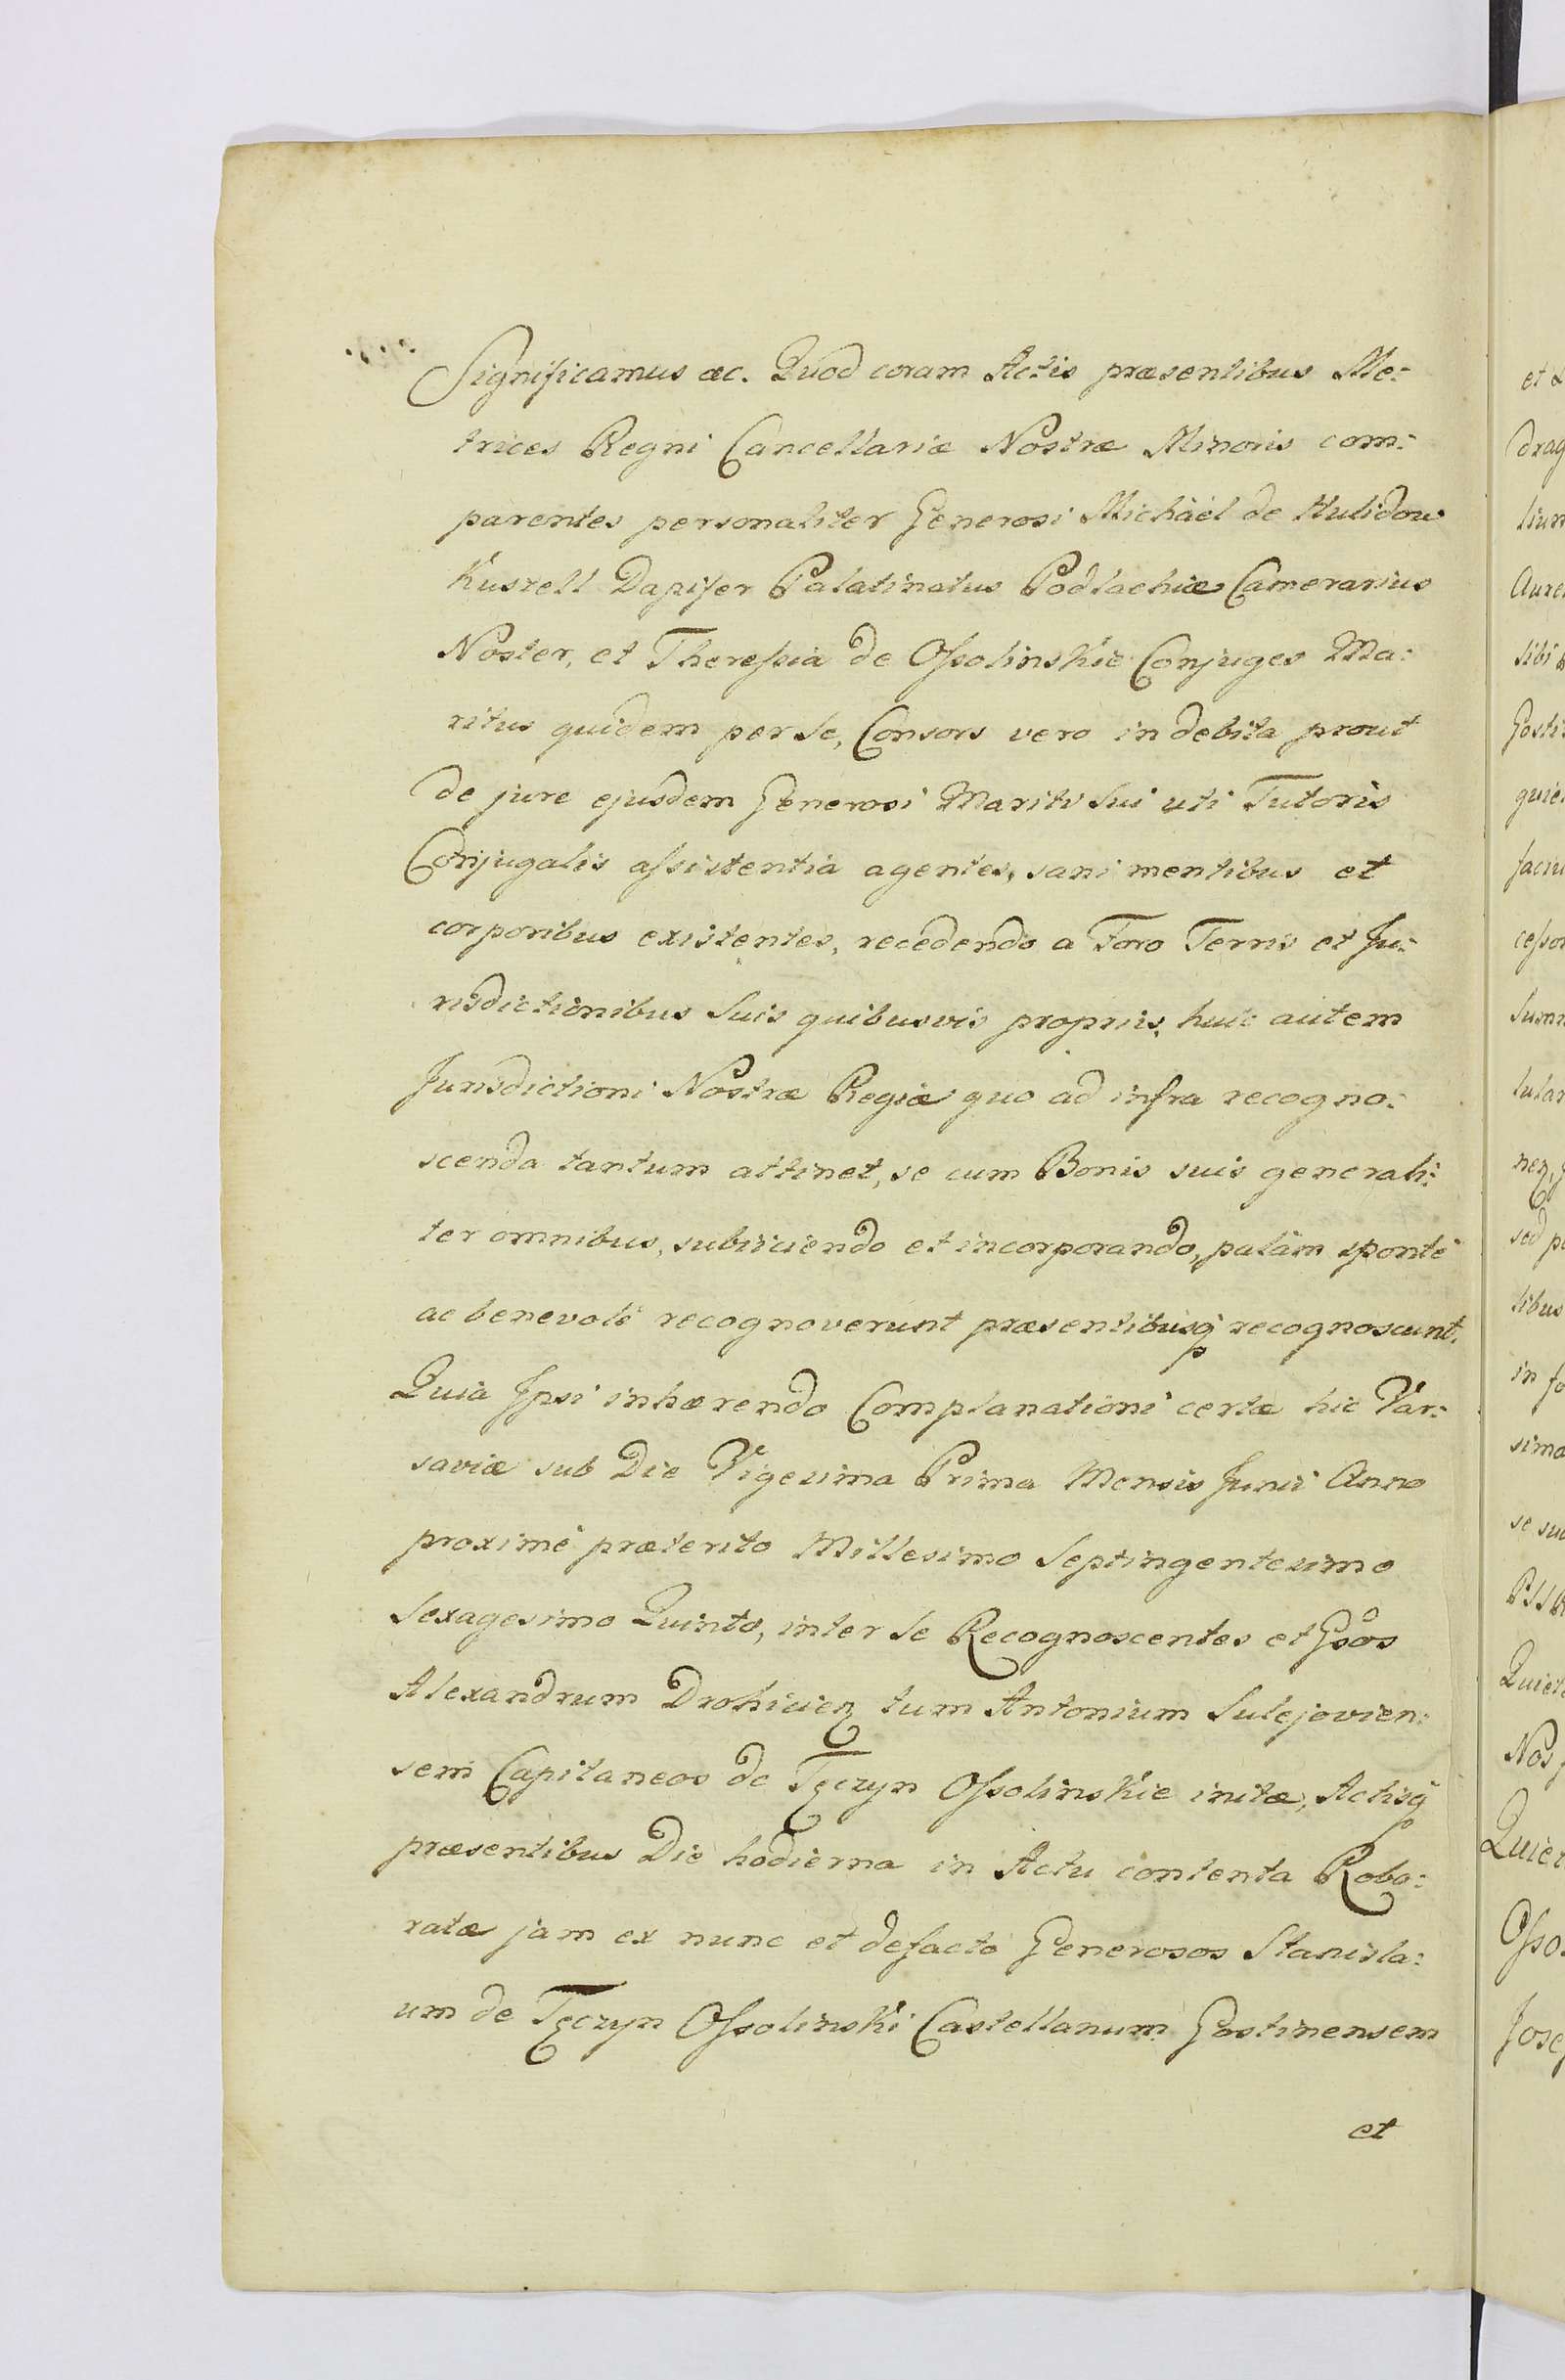 Significamus æc. Quod coram Actis præsentibus Me:
trices Regni Cancellariæ Nostræ Minoris com:
parentes personaliter Generosi Michäel de Hulidow
Kuszell Dapifer Palatinatus Podlachiæ Camerarius
Noster, et Theressia de Ossolinskie Conjuges Ma:
ritus quidem per se, Consors vero in debita prout
de jure ejusdem Generosi Mariti sui uti Tutoris
Conjugalis assistentia agentes, sani mentibus et
corporibus existentes, recedendo a Foro Terris et Ju:
risdictionibus suis quibusvis propriis, huic autem
Jurisdictioni Nostræ Regiæ quo ad infra recogno:
scenda tantum attinet, se cum Bonis suis generali:
ter omnibus, subiiciendo et incorporando, palàm spontè
ac benevolè recognoverunt præsentibusq recognoscunt.
Quia Ipsi inhærendo Complanationi certæ hic Var:
saviæ sub Die Vigesima Prima Mensis Junii Anno
proximè præterito Millesimo Septingentesimo
Sexagesimo Quinto, inter se Recognoscentes et Gsos
Alexandrum Drohicien tum Antonium Sulejovien:
sem Capitaneos de Tęczyn Ossolinskie initæ, Actisq
præsentibus Die hodierna in Actu contenta Robo:
ratæ jam ex nunc et defacto Generosos Stanisla:
um de Tęczyn Ossolinski Castellanum Gostinensem
et